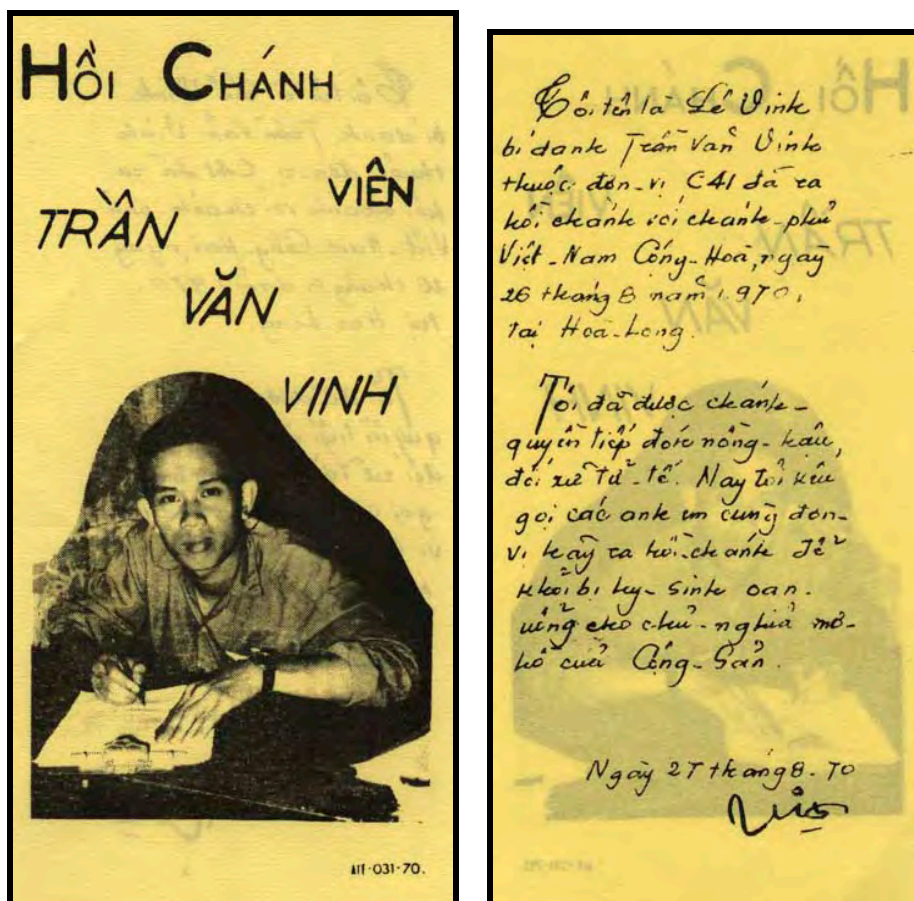 HỒI CHÁNH
VIÊN
TRẦN
VĂN
VINH
ATF-031-70.
Tôi tên là Lê Vinh
bí danh Trần Văn Vinh
thuộc đơn-vị C41 đã ra
hồi chánh với chánh-phủ
Việt-Nam Cộng-Hoà, ngày
26 tháng 8 năm 1.970,
Tại Hoà-Long.
Tôi đã được chánh-
quyền tiếp đón nồng-hậu,
đối xử tử-tế. Nay tôi kêu
gọi các anh em cùng đơn-
vị hãy ra hồi-chánh để
khỏi bị hy-sinh oan.
uổng cho chủ-nghĩa mơ-
hồ của Cộng-Sản.
Ngày 27 tháng 8.70